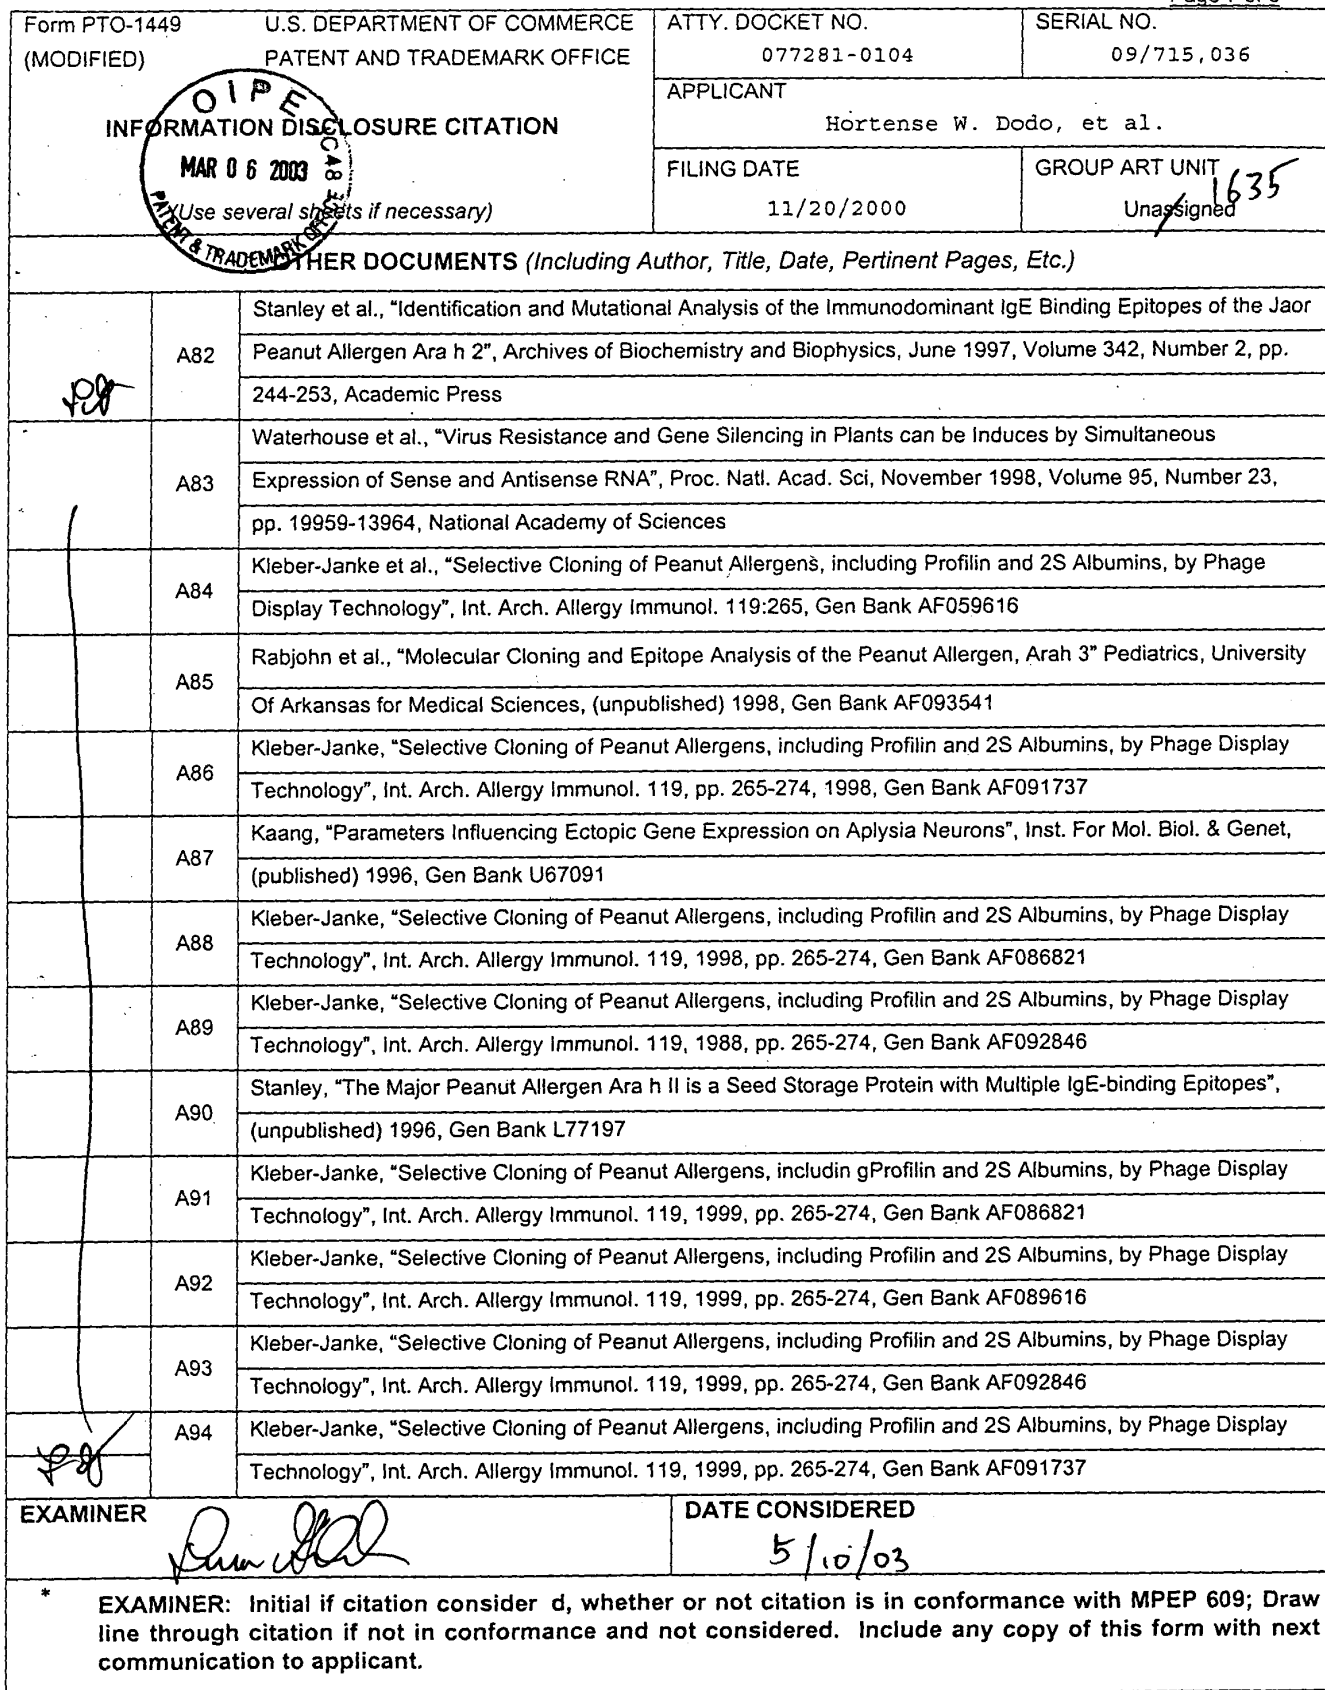 Form PTO-1449 U.S. DEPARTMENT OF COMMERCE
(MODIFIED) PATENT AND TRADEMARK OFFICE
ATTY. DOCKET NO.
077281-0104
SERIAL NO.
09/715,036
APPLICANT
Hortense W. Dodo, et al.
OIPE
INFORMATION DISCLOSURE CITATION
MAR 06 2003
(Use several sheets if necessary)
PATENT & TRADEMARK OFFICE
FILING DATE
11/20/2000
GROUP ART UNIT
Unassigned
1635
OTHER DOCUMENTS (Including Author, Title, Date, Pertinent Pages, Etc.)
A82
Stanley et al., "Identification and Mutational Analysis of the Immunodominant IgE Binding Epitopes of the Jaor
Peanut Allergen Ara h 2", Archives of Biochemistry and Biophysics, June 1997, Volume 342, Number 2, pp.
244-253, Academic Press
A83
Waterhouse et al., "Virus Resistance and Gene Silencing in Plants can be Induces by Simultaneous
Expression of Sense and Antisense RNA", Proc. Natl. Acad. Sci, November 1998, Volume 95, Number 23,
pp. 19959-13964, National Academy of Sciences
A84
Kleber-Janke et al., "Selective Cloning of Peanut Allergens, including Profilin and 2S Albumins, by Phage
Display Technology", Int. Arch. Allergy Immunol. 119:265, Gen Bank AF059616
A85
Rabjohn et al., "Molecular Cloning and Epitope Analysis of the Peanut Allergen, Arah 3" Pediatrics, University
Of Arkansas for Medical Sciences, (unpublished) 1998, Gen Bank AF093541
A86
Kleber-Janke, "Selective Cloning of Peanut Allergens, including Profilin and 2S Albumins, by Phage Display
Technology", Int. Arch. Allergy Immunol. 119, pp. 265-274, 1998, Gen Bank AF091737
A87
Kaang, "Parameters Influencing Ectopic Gene Expression on Aplysia Neurons", Inst. For Mol. Biol. & Genet,
(published) 1996, Gen Bank U67091
A88
Kleber-Janke, "Selective Cloning of Peanut Allergens, including Profilin and 2S Albumins, by Phage Display
Technology", Int. Arch. Allergy Immunol. 119, 1998, pp. 265-274, Gen Bank AF086821
A89
Kleber-Janke, "Selective Cloning of Peanut Allergens, including Profilin and 2S Albumins, by Phage Display
Technology", Int. Arch. Allergy Immunol. 119, 1988, pp. 265-274, Gen Bank AF092846
A90
Stanley, "The Major Peanut Allergen Ara h II is a Seed Storage Protein with Multiple IgE-binding Epitopes",
(unpublished) 1996, Gen Bank L77197
A91
Kleber-Janke, "Selective Cloning of Peanut Allergens, includin gProfilin and 2S Albumins, by Phage Display
Technology", Int. Arch. Allergy Immunol. 119, 1999, pp. 265-274, Gen Bank AF086821
A92
Kleber-Janke, "Selective Cloning of Peanut Allergens, including Profilin and 2S Albumins, by Phage Display
Technology", Int. Arch. Allergy Immunol. 119, 1999, pp. 265-274, Gen Bank AF089616
A93
Kleber-Janke, "Selective Cloning of Peanut Allergens, including Profilin and 2S Albumins, by Phage Display
Technology", Int. Arch. Allergy Immunol. 119, 1999, pp. 265-274, Gen Bank AF092846
A94
Kleber-Janke, "Selective Cloning of Peanut Allergens, including Profilin and 2S Albumins, by Phage Display
Technology", Int. Arch. Allergy Immunol. 119, 1999, pp. 265-274, Gen Bank AF091737
EXAMINER
DATE CONSIDERED
5/10/03
* EXAMINER: Initial if citation consider d, whether or not citation is in conformance with MPEP 609; Draw
line through citation if not in conformance and not considered. Include any copy of this form with next
communication to applicant.